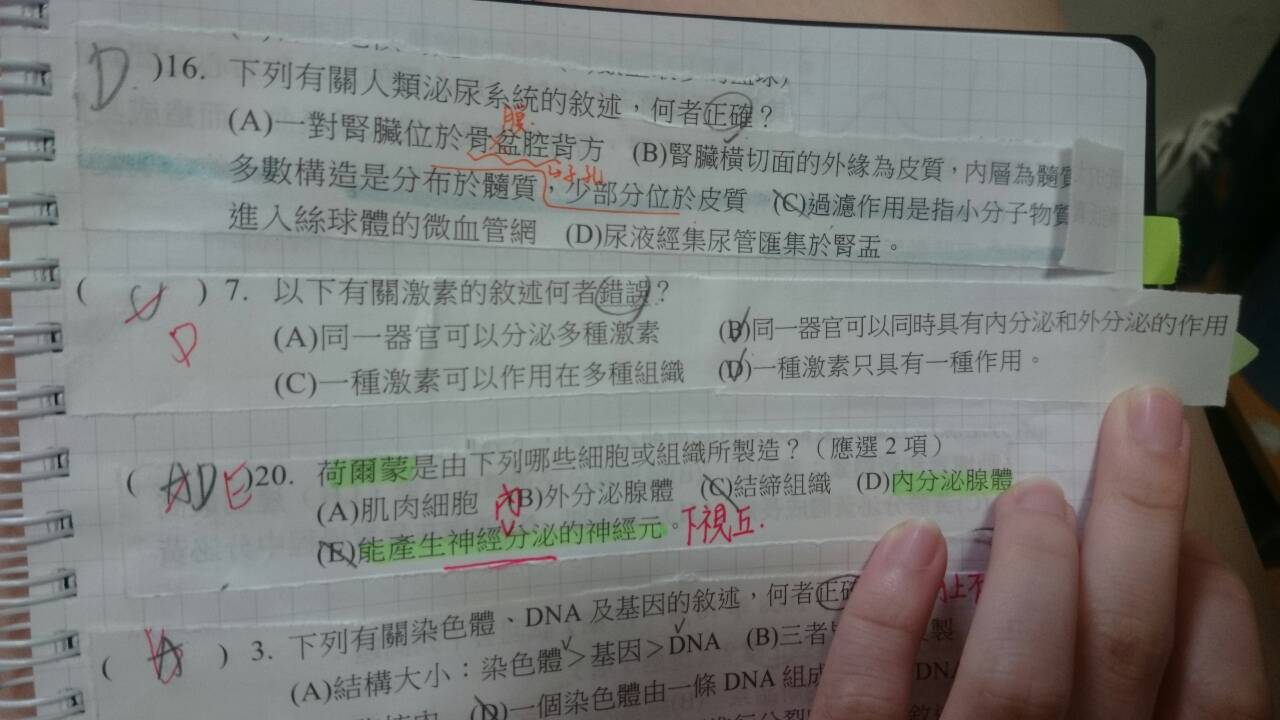 D )16. 下列有關人類泌尿系統的敘述，何者正確？
膜
(A)一對腎臟位於骨盆腔背方 (B)腎臟橫切面的外緣為皮質，內層為髓質
多數構造是分布於髓質，少部分位於皮質 (C)過濾作用是指小分子物質
進入絲球體的微血管網 (D)尿液經集尿管匯集於腎盂。
( ) 7. 以下有關激素的敘述何者錯誤？
D
(A)同一器官可以分泌多種激素 (B)同一器官可以同時具有內分泌和外分泌的作用
(C)一種激素可以作用在多種組織 (D)一種激素只具有一種作用。
( ADE )20. 荷爾蒙是由下列哪些細胞或組織所製造？（應選 2 項）
(A)肌肉細胞 (B)外分泌腺體 (C)結締組織 (D)內分泌腺體
內
(E)能產生神經分泌的神經元。 下視丘.
( ) 3. 下列有關染色體、DNA 及基因的敘述，何者正確
(A)結構大小：染色體＞基因＞DNA (B)三者
(D)一個染色體由一條 DNA 組成 DNA